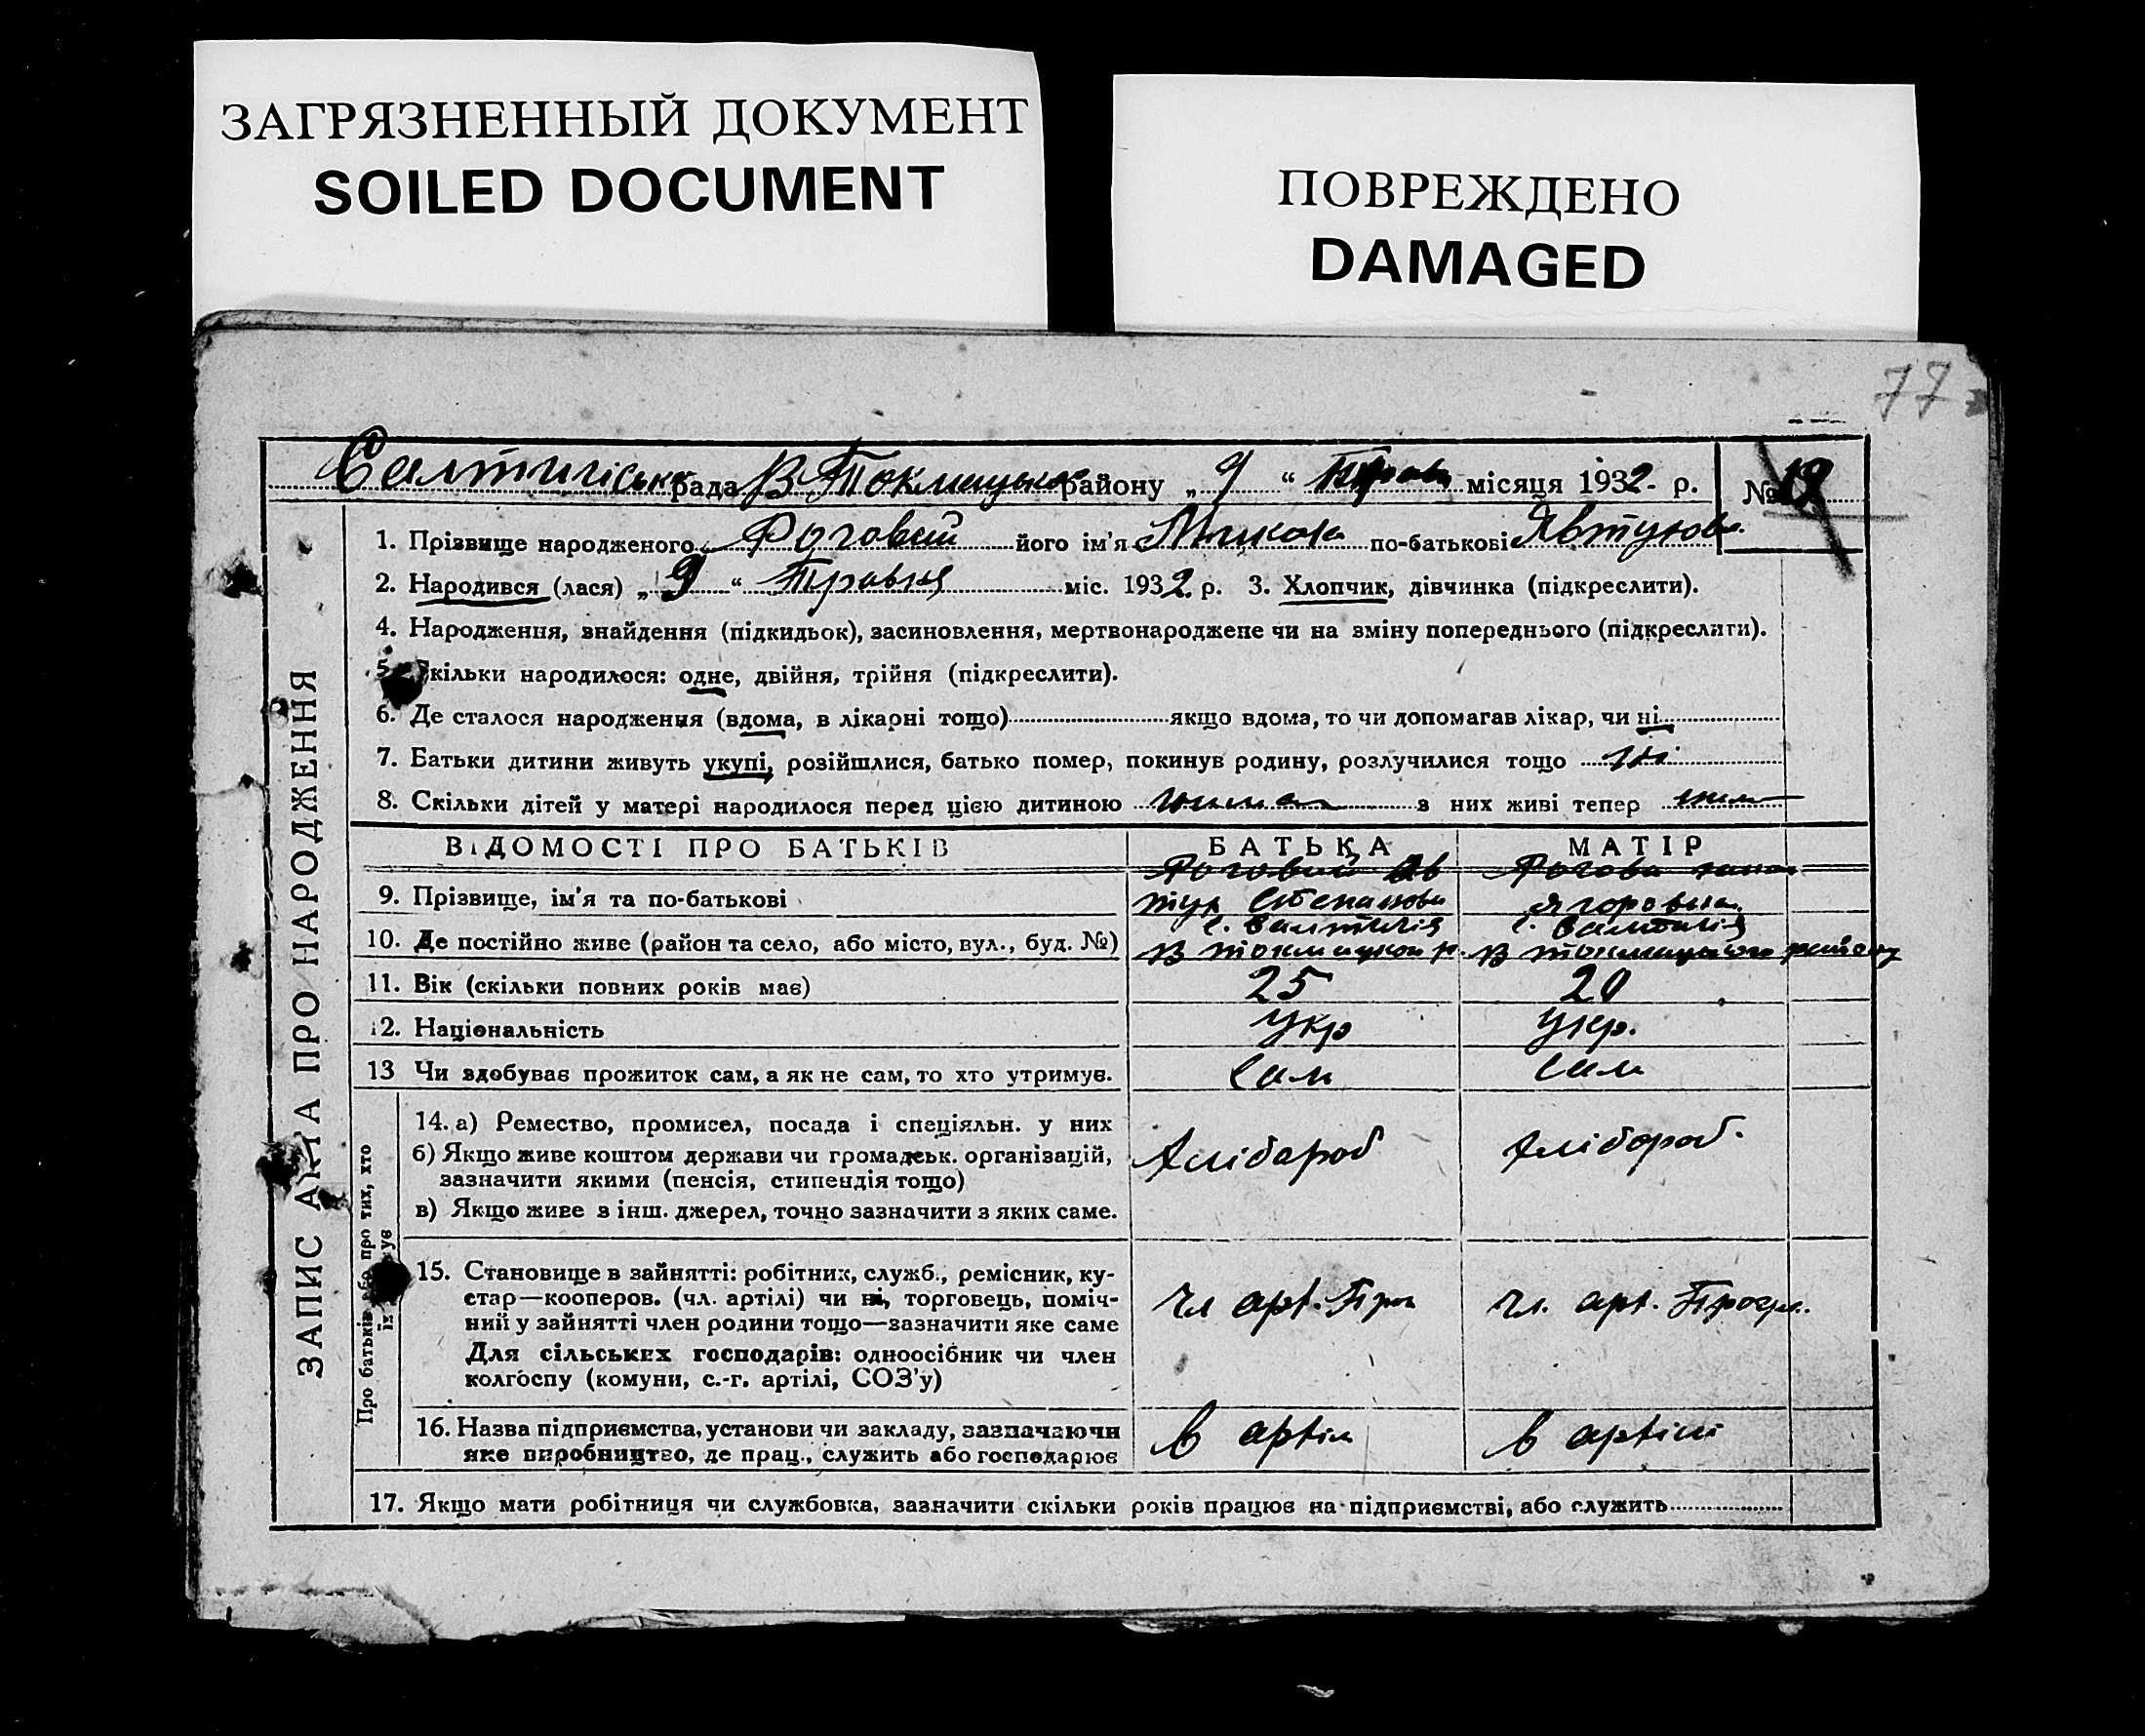 ЗАГРЯЗНЕННЫЙ ДОКУМЕНТ
SOILED DOCUMENT
ПОВРЕЖДЕНО
DAMAGED
77
рада В Токмацького району „ 9 “ місяця 1932 р. №
1. Прізвище народженого Роговий його ім'я Микола по-батькові Явтухов.
2. Народився (лася) „ 9 “ Травня міс. 1932 р. 3. Хлопчик, дівчинка (підкреслити).
4. Народження, знайдення (підкидьок), засиновлення, мертвонароджене чи на зміну попереднього (підкреслити).
5. Скільки народилося: одне, двійня, трійня (підкреслити).
6. Де сталося народження (вдома, в лікарні тощо) якщо вдома, то чи допомагав лікар, чи ні
7. Батьки дитини живуть укупі, розійшлися, батько помер, покинув родину, розлучилися тощо
8. Скільки дітей у матері народилося перед цією дитиною з них живі тепер
ВІДОМОСТІ ПРО БАТЬКІВ БАТЬКА МАТІР
Роговий Яв Рогова
9. Прізвище, ім'я та по-батькові тух Степанови Ягоровна
с. Салтичія с. Салтичія
10. Де постійно живе (район та село, або місто, вул., буд. №) В В Токмацького району
11. Вік (скільки повних років має) 25 20
12. Національність Укр Укр.
13 Чи здобуває прожиток сам, а як не сам, то хто утримує. Сам Сам
14. а) Ремество, промисел, посада і спеціяльн. у них
б) Якщо живе коштом держави чи громадськ. організацій, Хлібороб Хлібороб.
зазначити якими (пенсія, стипендія тощо)
в) Якщо живе з інш. джерел, точно зазначити з яких саме.
15. Становище в зайнятті: робітник, служб., ремісник, ку-
стар—кооперов. (чл. артілі) чи ні, торговець, поміч- Чл арт. Про Чл. арт.
ний у зайнятті член родини тощо—зазначити яке саме
Для сільських господарів: одноосібник чи член
колгоспу (комуни, с.-г. артілі, СОЗ'у)
16. Назва підприємства, установи чи закладу, зазначаючи в артіл в артілі
яке виробництво, де прац., служить або господарює
17. Якщо мати робітниця чи службовка, зазначити скільки років працює на підприємстві, або служить
ЗАПИС АКТА ПРО НАРОДЖЕННЯ
Про батьків або про тих, хто
їх